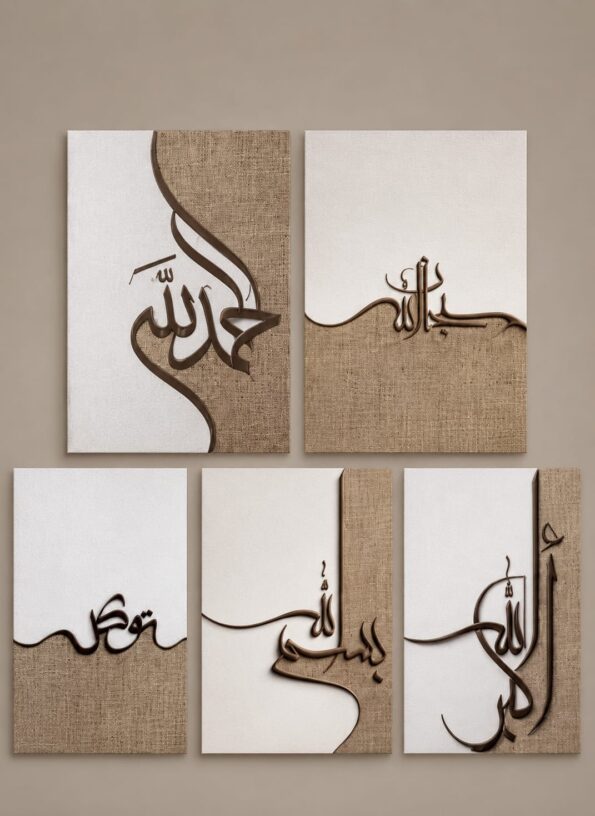 سبحان الله
الحمد لله
الله أكبر
بسم الله
توكل